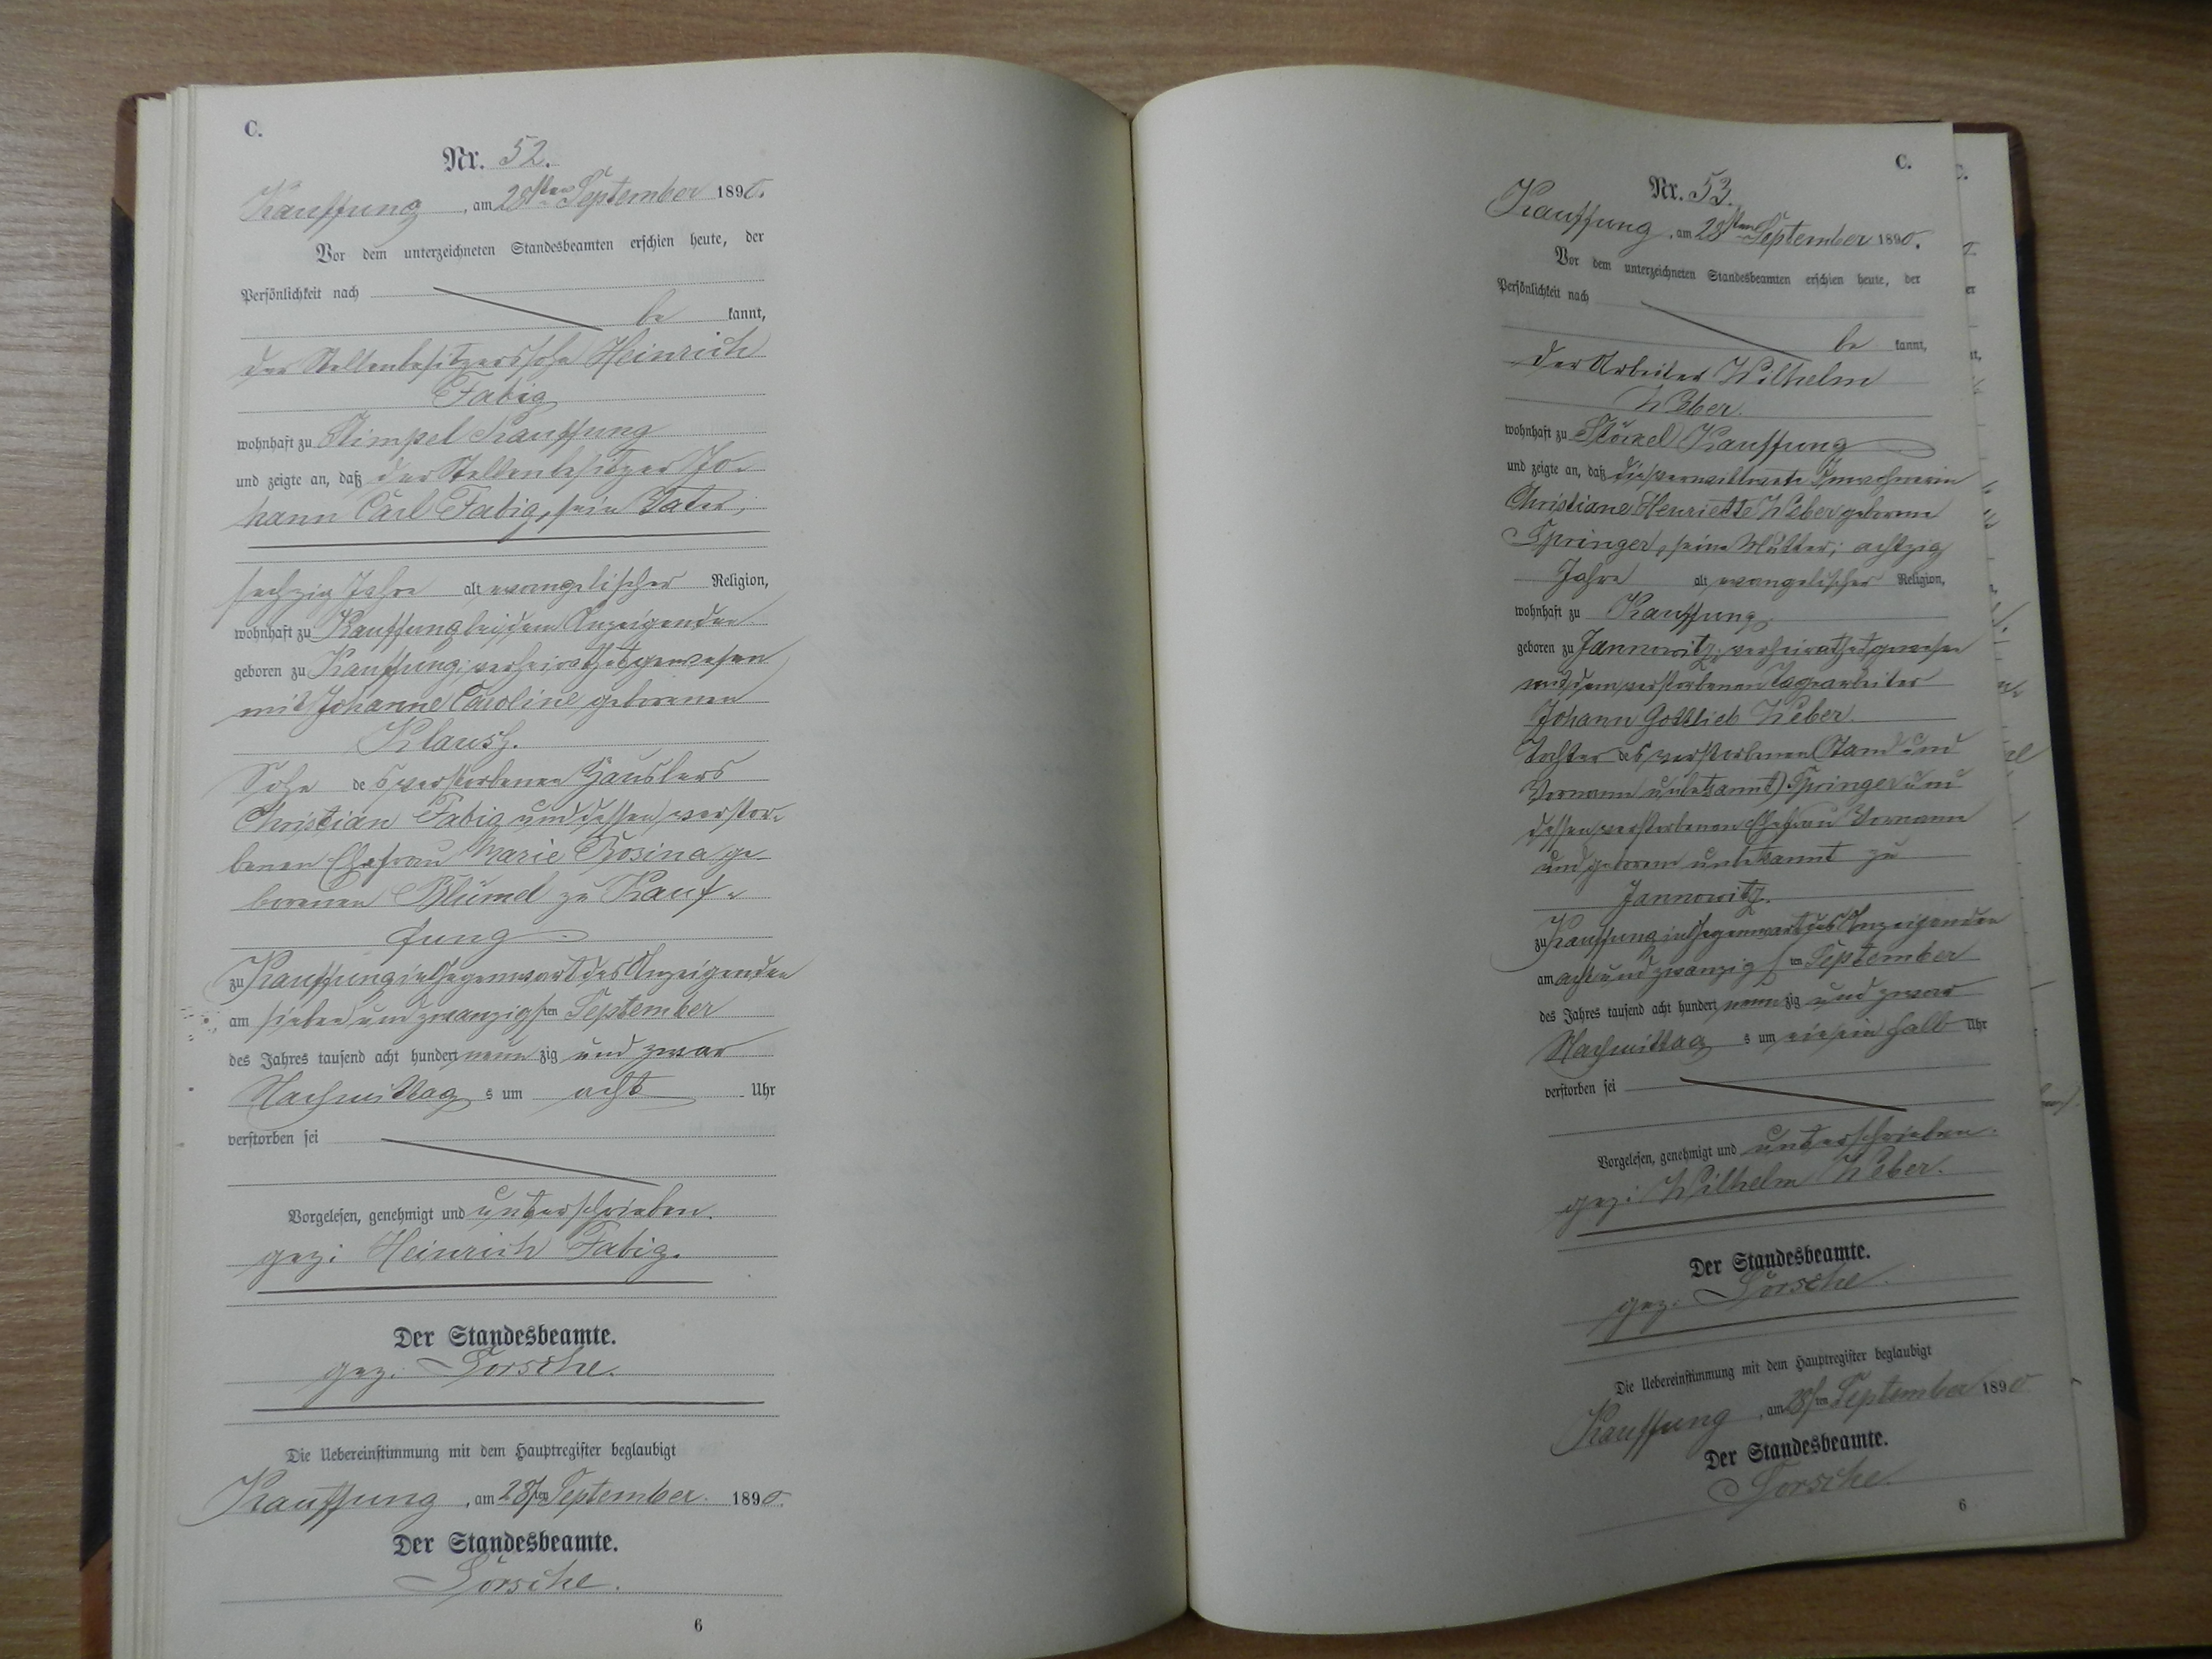 C.
Nr. 52.
Kauffung, am 28sten September 1890.
Vor dem unterzeichneten Standesbeamten erschien heute, der
Persönlichkeit nach
be kannt,
der Stellenbesitzerssohn Heinrich
Fabig
wohnhaft zu Stimpel Kauffung
und zeigte an, daß der Stellenbesitzer Jo-
hann Carl Fabig, sein Vater;
sechzig Jahre alt, evangelischer Religion,
wohnhaft zu Kauffung bei dem Anzeigenden
geboren zu Kauffung; verheirathet gewesen
mit Johanne Caroline geborenen
Klausz.
Sohn des verstorbenen Häuslers
Christian Fabig und dessen verstor-
benen Ehefrau Marie Rosina ge-
borenen Blümel zu Kauf-
fung
zu Kauffung in Gegenwart des Anzeigenden
am sieben und zwanzigsten September
des Jahres tausend acht hundert neunzig und zwar
Nachmittags um acht Uhr
verstorben sei
Vorgelesen, genehmigt und unterschrieben.
gez: Heinrich Fabig.
Der Standesbeamte.
gez. Sörsche.
Die Uebereinstimmung mit dem Hauptregister beglaubigt
Kauffung, am 28sten September 1890.
Der Standesbeamte.
Sörsche.
6
C.
Nr. 53.
Kauffung, am 28sten September 1890.
Vor dem unterzeichneten Standesbeamten erschien heute, der
Persönlichkeit nach
be kannt,
der Arbeiter Wilhelm
Weber.
wohnhaft zu Stöckel Kauffung
und zeigte an, daß die verwittwete Inwohnerin
Christiane Henriette Weber geborene
Springer, seine Mutter; achtzig
Jahre alt, evangelischer Religion,
wohnhaft zu Kauffung
geboren zu Jannowitz; verheirathet gewesen
mit dem verstorbenen Tagearbeiter
Johann Gottlieb Weber.
Tochter des verstorbenen (Stand und
Vorname unbekannt) Springer und
dessen verstorbenen Ehefrau Vorname
und geborene unbekannt zu
Jannowitz.
zu Kauffung in Gegenwart des Anzeigenden
am acht und zwanzigsten September
des Jahres tausend acht hundert neunzig und zwar
Nachmittags um ein halb Uhr
verstorben sei
Vorgelesen, genehmigt und unterschrieben.
gez: Wilhelm Weber.
Der Standesbeamte.
gez. Sörsche.
Die Uebereinstimmung mit dem Hauptregister beglaubigt
Kauffung, am 28sten September 1890
Der Standesbeamte.
Sörsche.
6